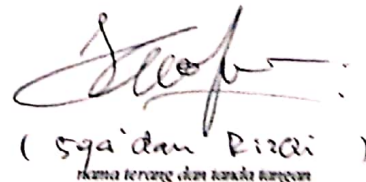 ( Sya'dan Rizqi )
nama terang dan tanda tangan